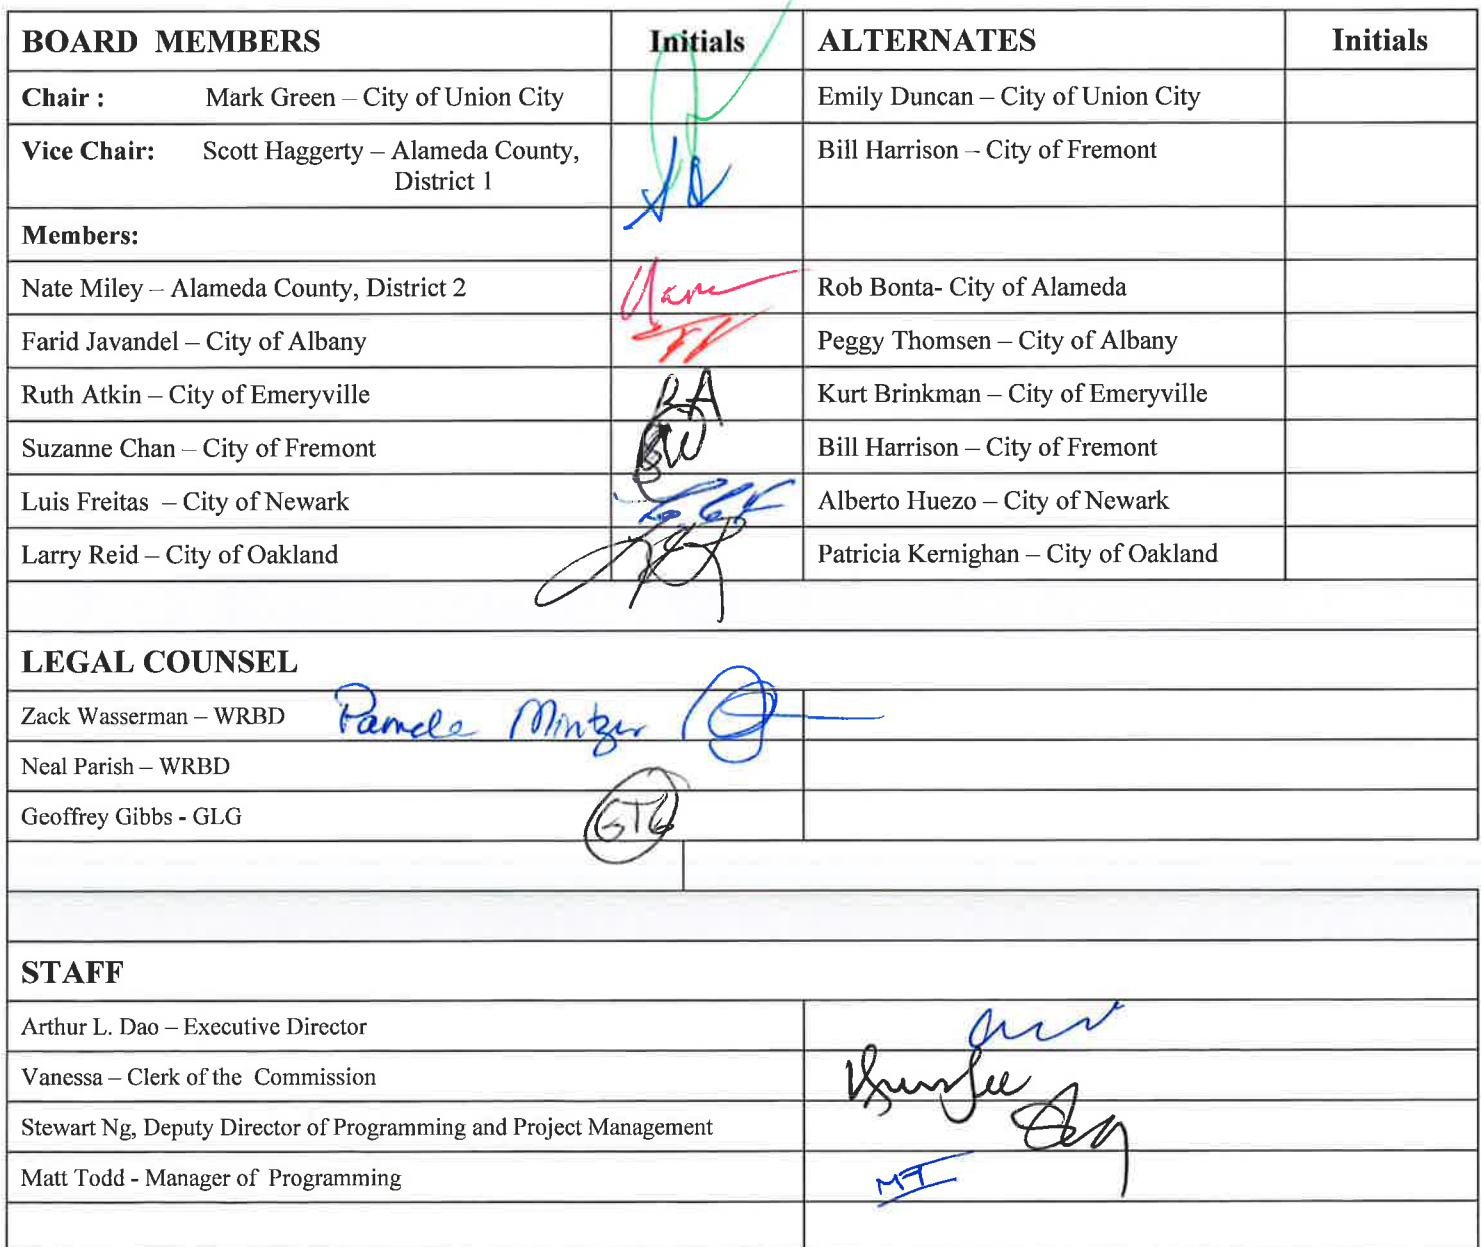 BOARD MEMBERS Initials ALTERNATES Initials
Chair : Mark Green – City of Union City Emily Duncan – City of Union City
Vice Chair: Scott Haggerty – Alameda County, Bill Harrison – City of Fremont
District 1
Members:
Nate Miley – Alameda County, District 2 Rob Bonta- City of Alameda
Farid Javandel – City of Albany Peggy Thomsen – City of Albany
Ruth Atkin – City of Emeryville RA Kurt Brinkman – City of Emeryville
Suzanne Chan – City of Fremont Bill Harrison – City of Fremont
Luis Freitas – City of Newark Alberto Huezo – City of Newark
Larry Reid – City of Oakland Patricia Kernighan – City of Oakland
LEGAL COUNSEL
Zack Wasserman – WRBD Pamela Mintzer
Neal Parish – WRBD
Geoffrey Gibbs - GLG GTG
STAFF
Arthur L. Dao – Executive Director
Vanessa – Clerk of the Commission
Stewart Ng, Deputy Director of Programming and Project Management
Matt Todd - Manager of Programming MT